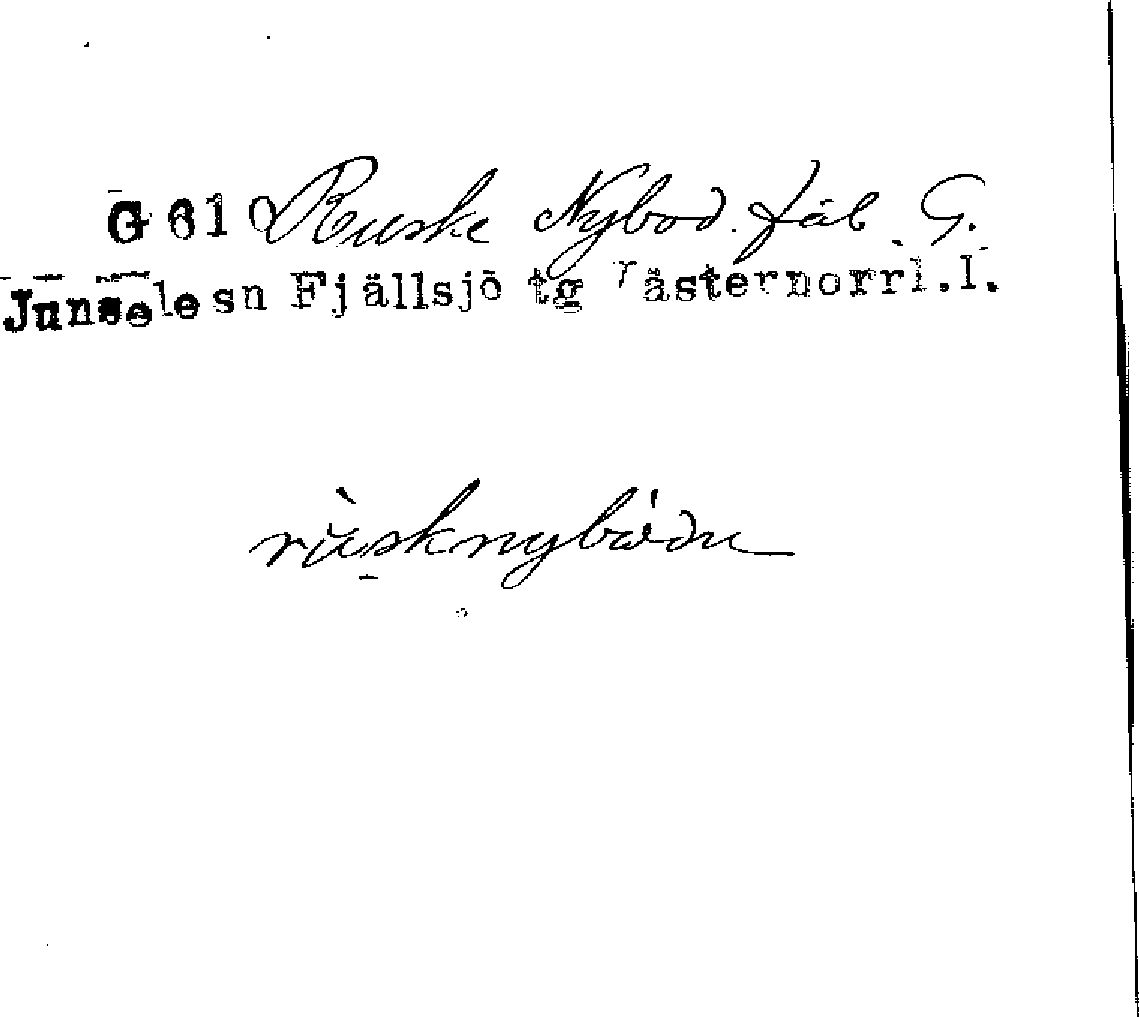 G 610 Ruske Nybod. fäb. G.
Junsele sn Fjällsjö tg Västernorrl.l.
rùsknybǿdu